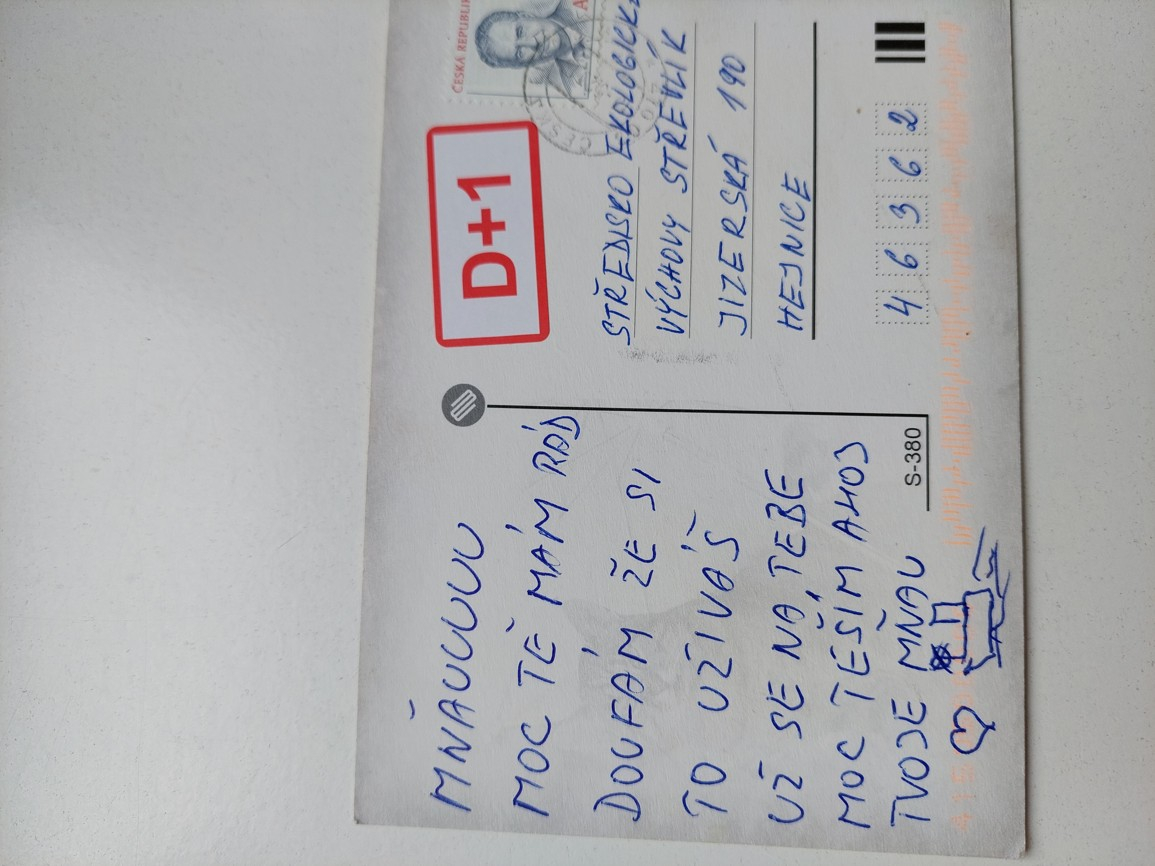 MŇAUUUUU
MOC TĚ MÁM RÁD
DOUFÁM ŽE SI
TO UŽIVÁŠ
UŽ SE NA TEBE
MOC TĚŠÍM AHOJ
TVOJE MŇAU
S-380
ČESKÁ REPUBLIKA
A
D+1
STŘEDISKO EKOLOGICKÉ
VÝCHOVY STŘEVLÍK
JIZERSKÁ 190
HEJNICE
4 6 3 6 2